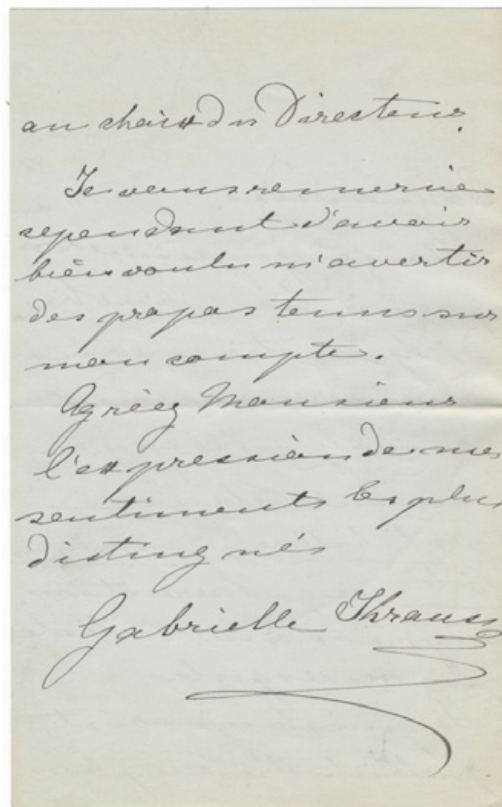 au choix du Directeur.
Je vous remercie
cependant d'avoir
bien voulu m'avertir
des propos tenus sur
mon compte.
Agréez Monsieur
l'expression de mes
sentiments les plus
distingués
Gabrielle Krauss